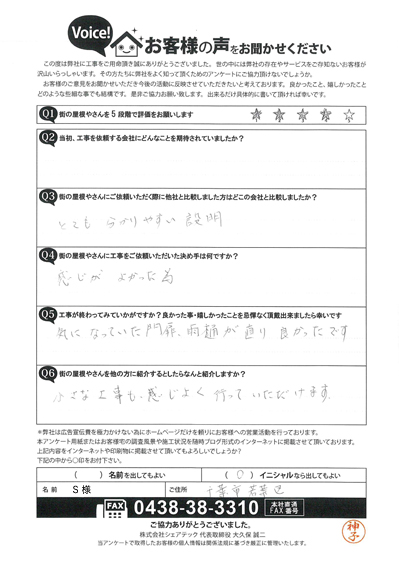 Voice!
お客様の声をお聞かせください
この度は弊社に工事をご用命頂き誠にありがとうございました。世の中には弊社の存在やサービスをご存知ないお客様が
沢山いらっしゃいます。その方たちに弊社をよく知って頂くためのアンケートにご協力頂けないでしょうか。
お客様のご意見をお聞かせいただき今後の活動に反映させていただきたいと考えております。良かったこと、嬉しかったこと
どのような些細な事でも結構です。是非ご協力お願い致します。出来るだけ具体的に書いて頂ければ幸いです。
Q1 街の屋根やさんを5段階で評価をお願いします ★ ★ ★ ★ ☆
Q2 当初、工事を依頼する会社にどんなことを期待されていましたか?
Q3 街の屋根やさんにご依頼いただく際に他社と比較しました方はどこの会社と比較しましたか?
とても 分かりやすい 説明
Q4 街の屋根やさんに工事をご依頼いただいた決め手は何ですか?
感じが よかった為
Q5 工事が終わってみていかがですか?良かった事・嬉しかったことを忌憚なく頂戴出来ましたら幸いです
気になっていた門扉、雨樋が直り良かったです
Q6 街の屋根やさんを他の方に紹介するとしたらなんと紹介しますか?
小さな工事も、感じよく行っていただけます。
※弊社は広告宣伝費を極力かけない為にホームページだけを頼りにお客様への営業活動を行っております。
本アンケート用紙またはお客様宅の調査風景や施工状況を随時ブログ形式のインターネットに掲載させて頂いております。
上記内容をインターネットや印刷物に掲載させて頂いてもよろしいでしょうか?
下記の中から○印をお付下さい。
( ) 名前を出してもよい ( ○ ) イニシャルなら出してもよい
名前 S 様 ご住所 千葉市若葉区
FAX 0438-38-3310 本社直通 FAX番号
ご協力ありがとうございました。
株式会社シェアテック 代表取締役 大久保 誠二
当アンケートで取得したお客様の個人情報は関係法規に基づき厳正に管理いたします。
神子